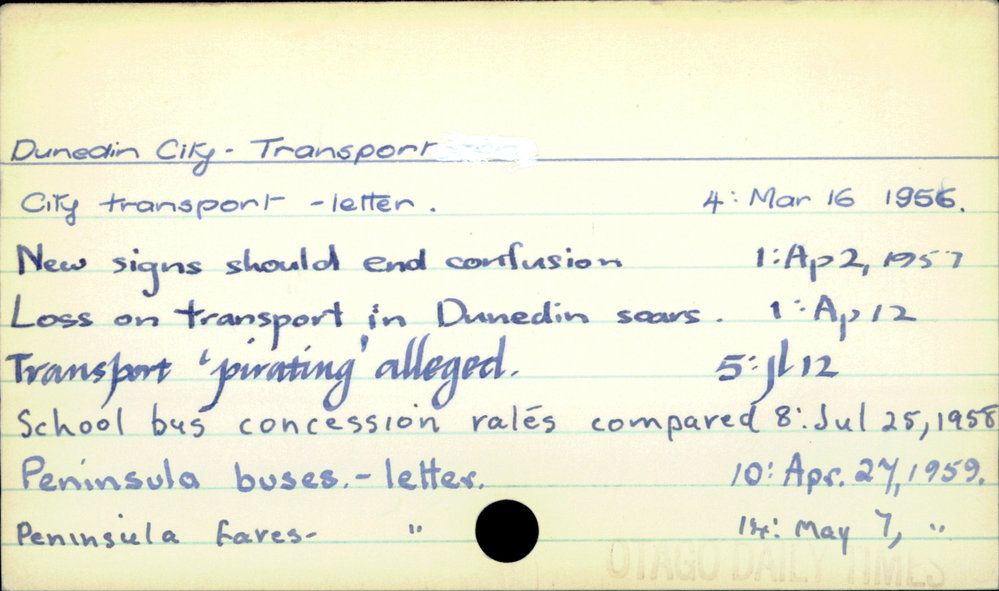 Dunedin City - Transport
City transport - letter. 4: Mar 16 1956.
New signs should end confusion 1: Ap 2, 1957
Loss on transport in Dunedin soars. 1: Ap 12
Transport 'pirating' alleged. 5: Jl 12
School bus concession rates compared 8: Jul 25, 1958
Peninsula buses. - letter. 10: Apr. 27, 1959.
Peninsula fares - " 14: May 7, "
OTAGO DAILY TIMES